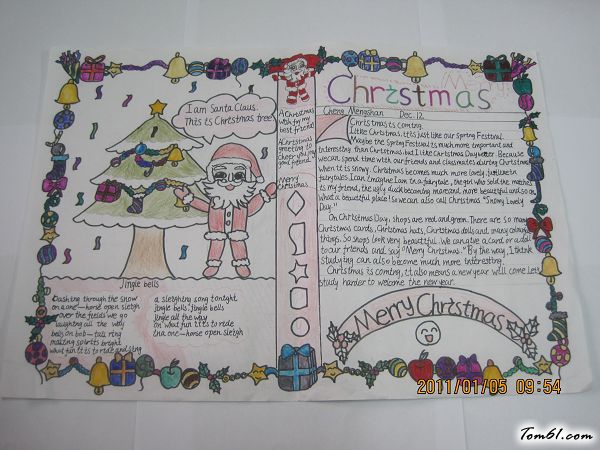 I am Santa Claus.
This is Christmas tree
Jingle bells
Dashing through the snow
on a one—horse open sleigh
over the fields we go
laughing all the way
bells on bob—tail ring
making spirits bright
what fun it is to ride and sing
a sleighing song tonight
jingle bells jingle bells
jingle all the way
on what fun it is to ride
in a one—horse open sleigh
A Christmas
wish for my
best friend!
A Christmas
greeting to
cheer you my
good friend
Merry
Christmas
Christmas
Cheng Mengshan Dec. 12
Christmas is coming
I like Christmas. it is just like our Spring Festival.
Maybe the Spring Festival is much more important and
interesting than Christmas. but I like the Christmas Day better. Because
we can spend time with our friends and classmates during Christmas
when it is snowy. Christmas becomes much more lovely, just like in
fairytales. I can imagine I am in a fairytale, the girl who sold the matches
is my friend, the ugly duck becoming more and more beautiful and so on
what a beautiful place! So we can also call Christmas "Snowy Lovely
Day."
On Christmas Day, shops are red and green. There are so many
Christmas cards, Christmas hats, Christmas dolls and many colourful
things. So shops look very beautiful. We can give a card or a doll
to our friends and say "Merry Christmas." By the way, I think
studying can also become much more interesting.
Christmas is coming, it also means a new year will come
study harder to welcome the new year.
Merry Christmas
2011/01/05 09:54
Tom61.com